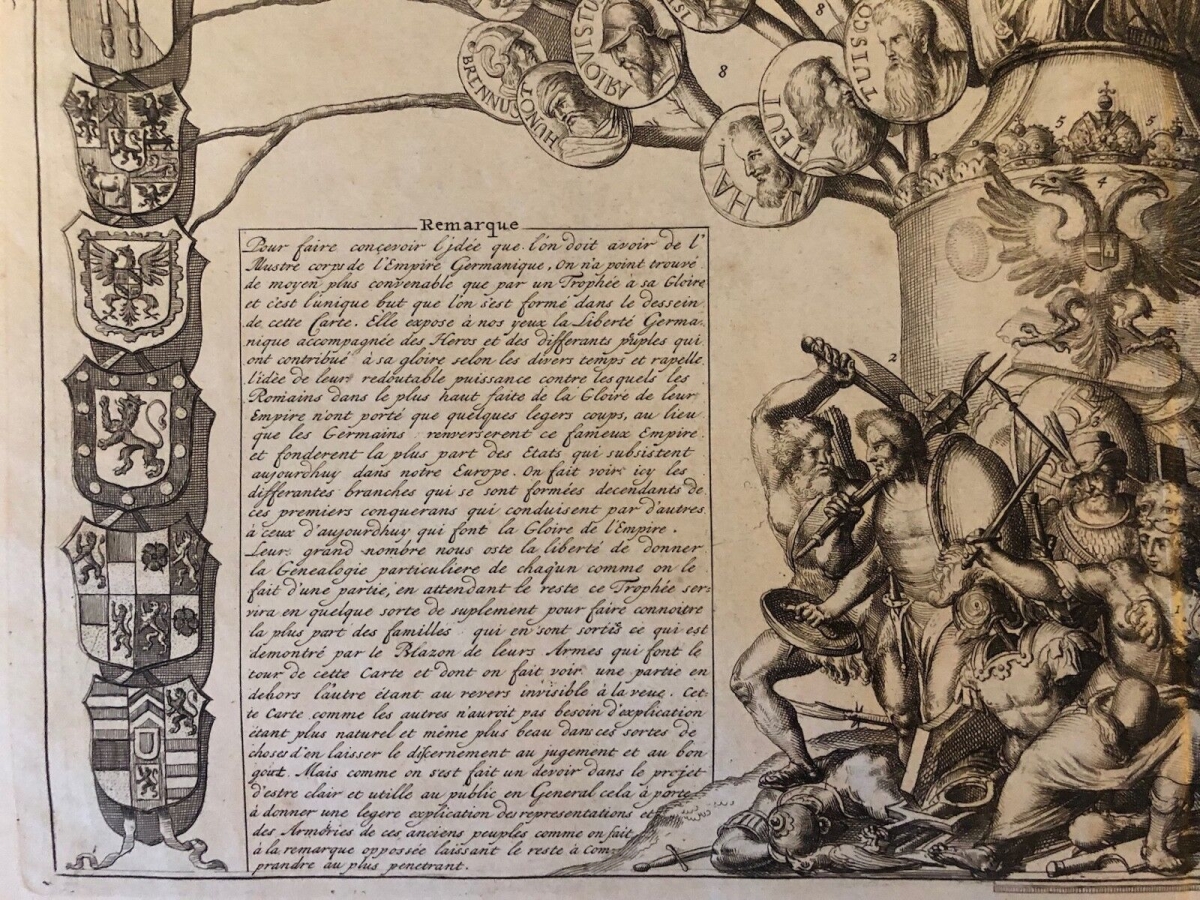 BRENNUS
HUNGOT
ARIOVISTU
TEUT
TUISCO
HAL
8
8
5
5
4
2
3
1
Remarque
Pour faire conçevoir l'jdée que l'on doit avoir de l'
Illustre corps de l'Empire Germanique, On n'a point trouvé
de moyen plus convenable que par un Trophée à sa Gloire
et c'est l'unique but que l'on s'est formé dans le dessein
de cette Carte. Elle expose à nos yeux la Liberté Germa-
nique accompagnée des Heros et des differants puples qui
ont contribué à sa gloire selon les divers temps et rapelle
l'idée de leur redoutable puissance contre lesquels les
Romains dans le plus haut faite de la Gloire de leur
Empire n'ont porté que quelques legers coups, au lieu
que les Germains renverserent ce fameux Empire
et fonderent la plus part des Etats qui subsistent
aujourdhuy dans notre Europe. On fait voir icy les
differantes branches qui se sont formées decendants de
ces premiers conquerans qui conduisent par d'autres
à ceux d'aujourdhuy qui font la Gloire de l'Empire.
Leur grand nombre nous oste la liberté de donner
la Genealogie particuliere de chaqun comme on le
fait d'une partie, en attendant le reste ce Trophée ser-
vira en quelque sorte de suplement pour faire connoitre
la plus part des familles qui en sont sortis ce qui est
demontré par le Blazon de leurs Armes qui font le
tour de cette Carte et dont on fait voir une partie en
dehors l'autre étant au revers invisible à la veue. Cet-
te Carte comme les autres n'auroit pas besoin d'explication
étant plus naturel et même plus beau dans ces sertes de
choses d'en laisser le discernement au jugement et au bon
goût. Mais comme on s'est fait un devoir dans le projet
d'estre clair et utille au public en General cela à porté
à donner une legere explication des representations et
des Armoiries de ces anciens peuples comme on fait
à la remarque oppossée laissant le reste à Com-
prandre au plus penetrant.